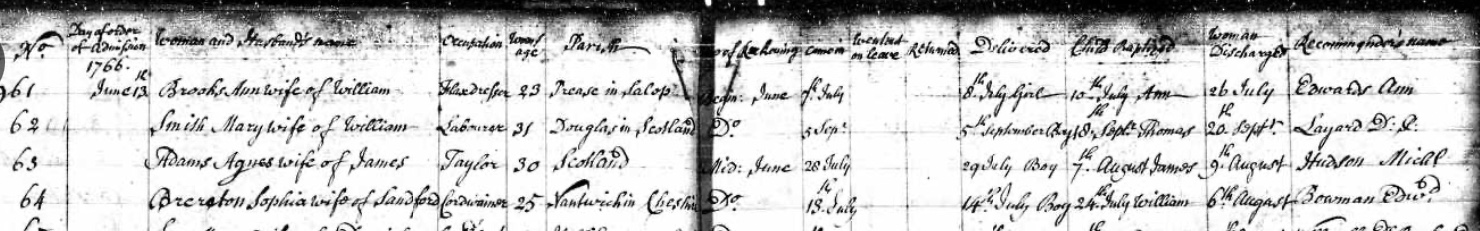 No. Day of order of Admission 1766. Woman and Husbands name Occupation Womans age Parish of Reckoning came in Went out on leave Returned Delivered Child Baptized Woman Discharged Recommenders name
61 June 13th Brooks Ann wife of William Flaxdresser 23 Prease in Salop Begin: June 7th July 8th July Girl 10th July Ann 26 July Edwards Ann
62 Smith Mary wife of William Labourer 31 Douglas in Scotland Do. 5 Sepr. 5th September Boy 18th Septr. Thomas 20th Septr. Layard D:
63 Adams Agnes wife of James Taylor 30 Scotland Mid: June 28 July 29 July Boy 7th August James 9th August Hudson Michl
64 Brereton Sophia wife of Sandford Cordwainer 25 Nantwich in Cheshire Do. 13th July 14th July Boy 24th July William 6th August Bowman Edwd.